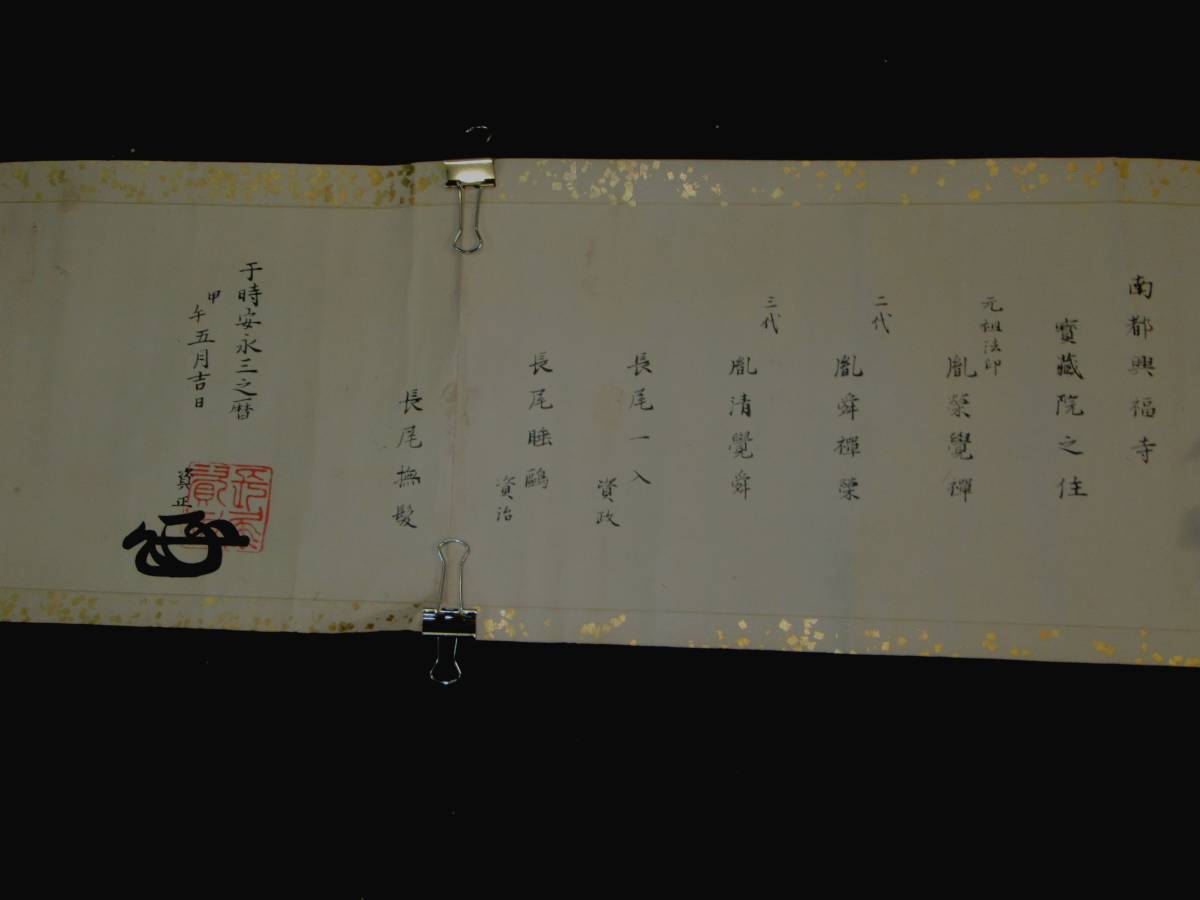 南都興福寺
寳藏院之住
元祖法印
胤榮覺禪
二代
胤舜禪榮
三代
胤清覺舜
長尾一入
資政
長尾睡鷗
資治
長尾撫髪
于時安永三之暦
甲午五月吉日
資正